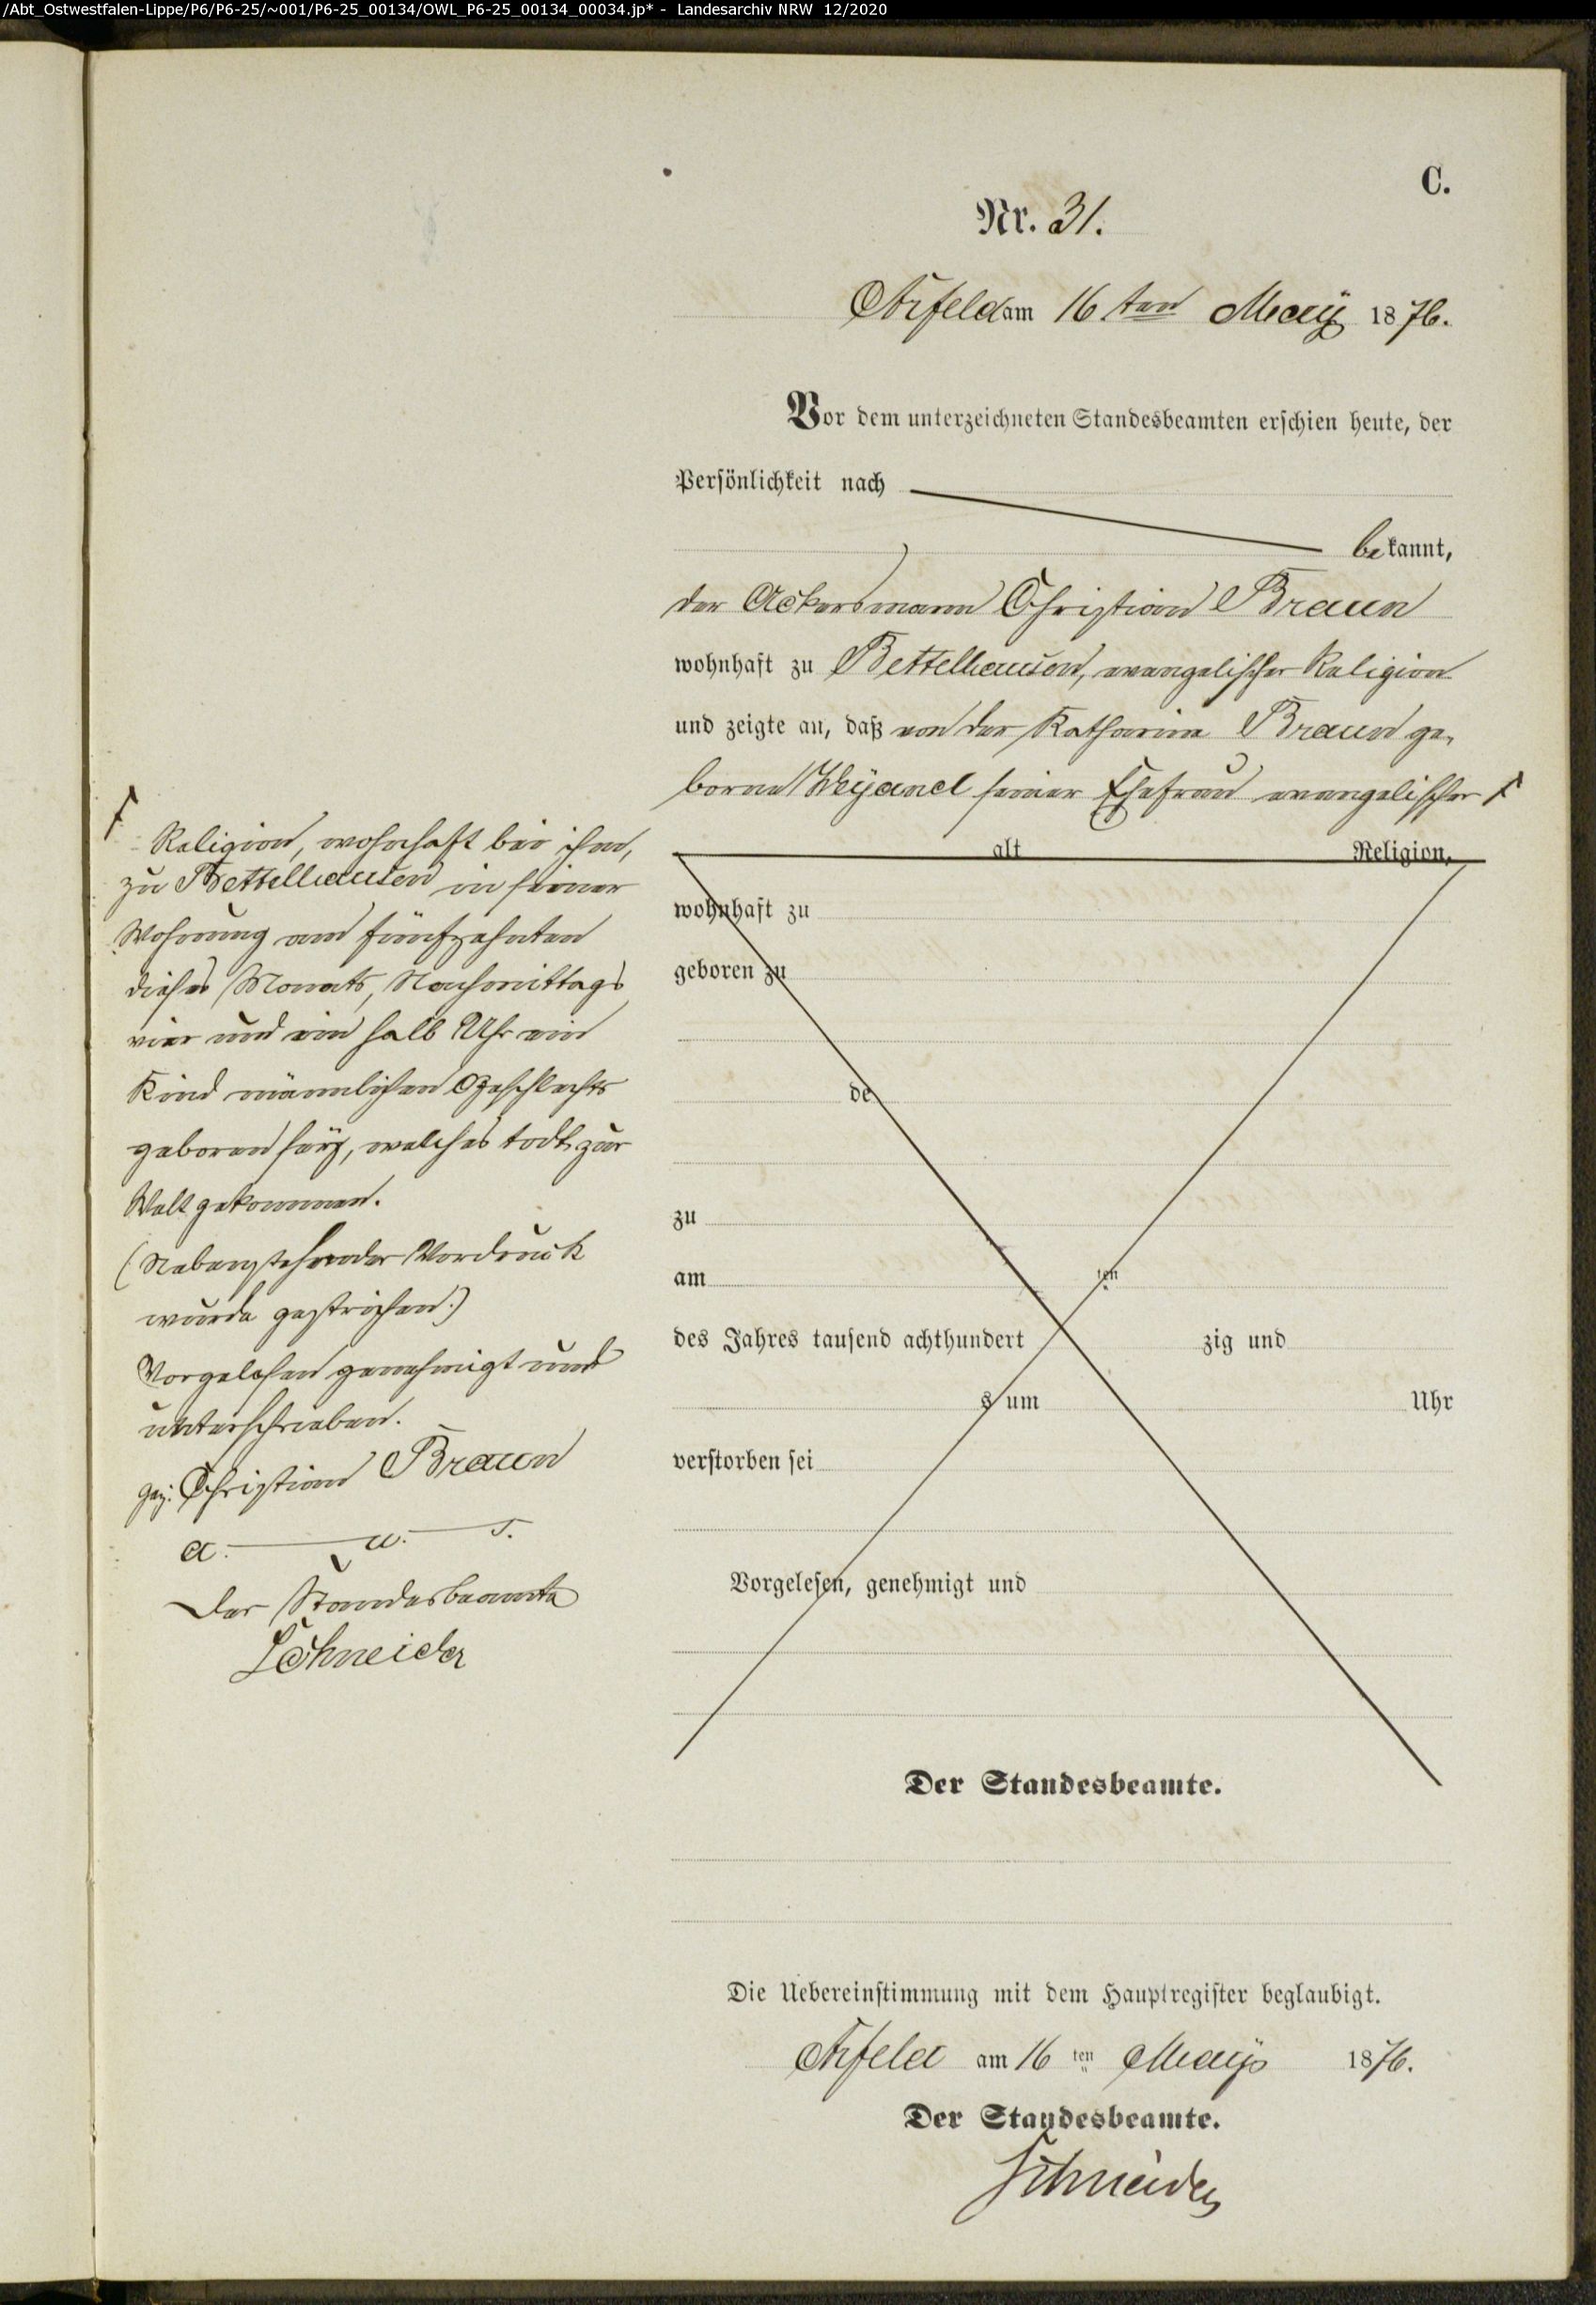 /Abt_Ostwestfalen-Lippe/P6/P6-25/~001/P6-25_00134/OWL_P6-25_00134_00034.jp* - Landesarchiv NRW 12/2020
C.
Nr. 31.
Arfeld am 16ten May 1876.
Vor dem unterzeichneten Standesbeamten erschien heute, der
Persönlichkeit nach
bekannt,
der Ackersmann Christian Braun
wohnhaft zu Bettelhausen, evangelischer Religion
und zeigte an, daß von der Katharina Braun ge-
borne Weyand seiner Ehefrau evangelischer
alt Religion,
wohnhaft zu
geboren zu
de
zu
am ten
des Jahres tausend achthundert zig und
s um Uhr
verstorben sei
Vorgelesen, genehmigt und
Der Standesbeamte.
Religion, wohnhaft bei ihm,
zu Bettelhausen in seiner
Wohnung am fünfzehnten
dieses Monats, Nachmittags
vier und ein halb Uhr ein
Kind männlichen Geschlechts
geboren sey, welches todt zur
Welt gekommen.
(Nebenstehender Vordruck
wurde gestrichen.)
Vorgelesen genehmigt und
unterschrieben.
gez: Christian Braun
a. u. s.
Der Standesbeamte
Schneider
Die Uebereinstimmung mit dem Hauptregister beglaubigt.
Arfeld am 16 ten May 1876.
Der Standesbeamte.
Schneider